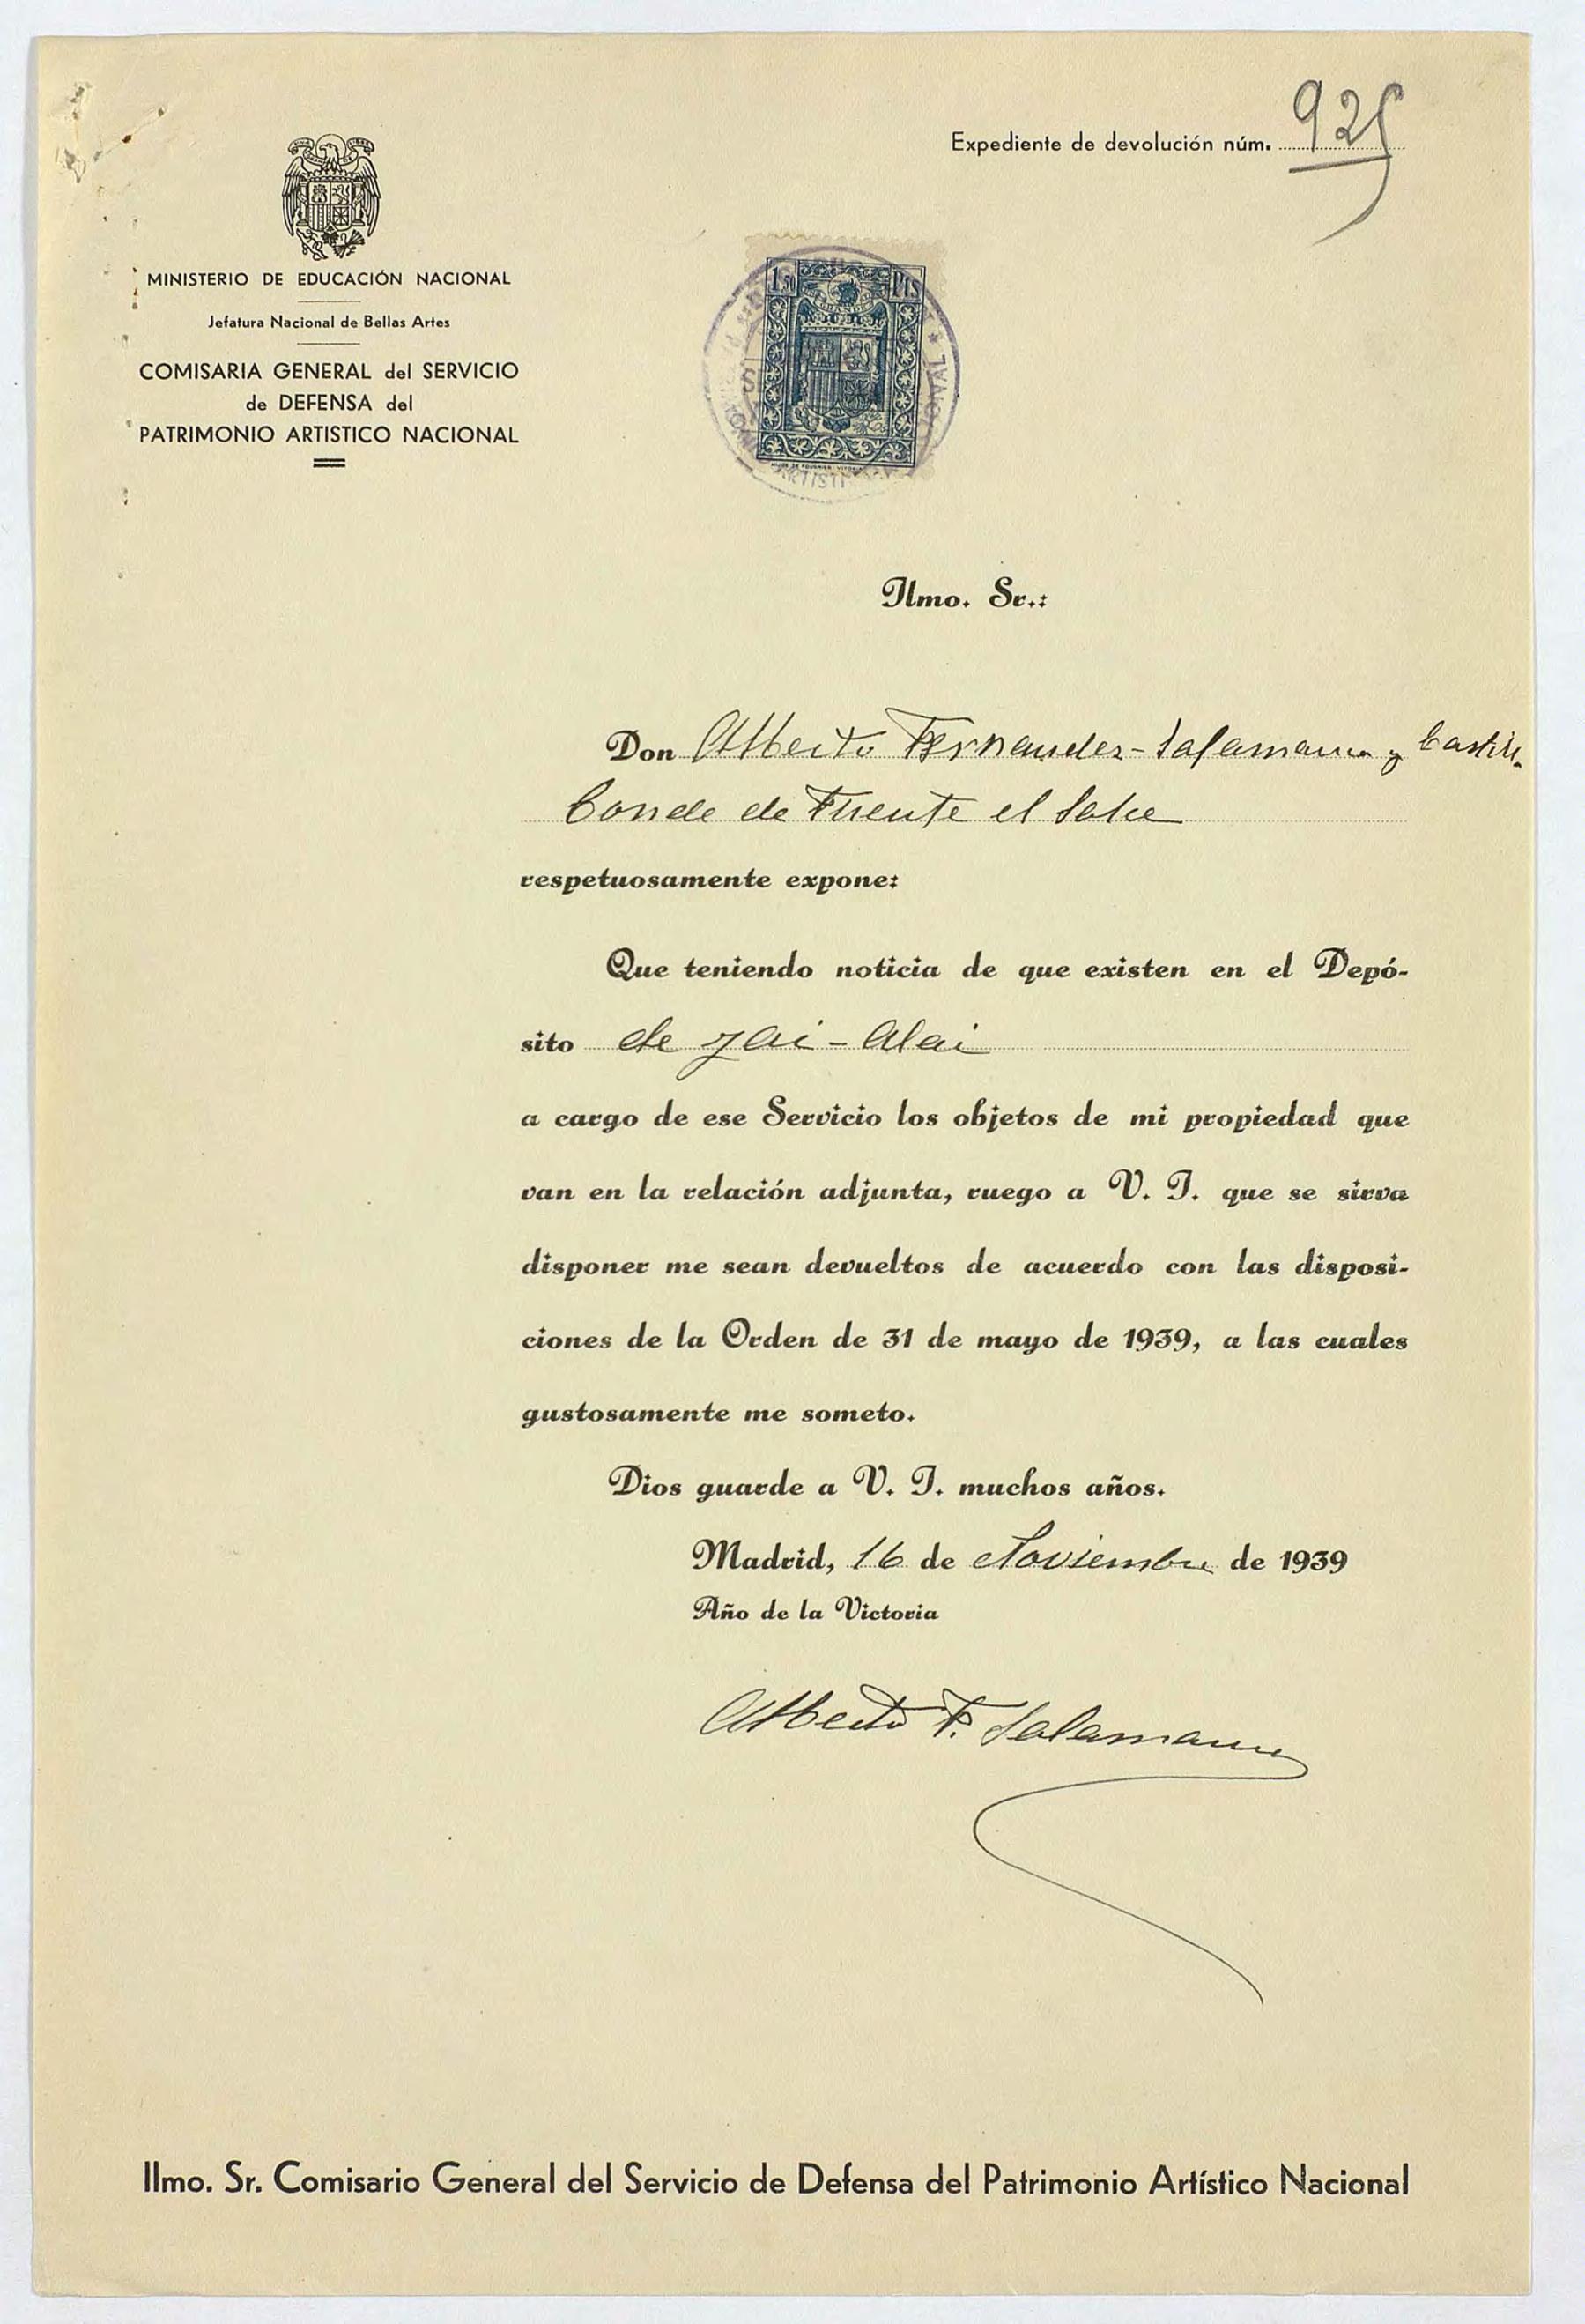 Expediente de devolución núm. 925
MINISTERIO DE EDUCACIÓN NACIONAL
Jefatura Nacional de Bellas Artes
COMISARIA GENERAL del SERVICIO
de DEFENSA del
PATRIMONIO ARTISTICO NACIONAL
1,50 PTS
Ilmo. Sr.:
Don Alberto Fernandez-Salamanca y
Conde de Fuente el Salce
respetuosamente expone:
Que teniendo noticia de que existen en el Depó-
sito de Jai-Alai
a cargo de ese Servicio los objetos de mi propiedad que
van en la relación adjunta, ruego a V. I. que se sirva
disponer me sean devueltos de acuerdo con las disposi-
ciones de la Orden de 31 de mayo de 1939, a las cuales
gustosamente me someto.
Dios guarde a V. I. muchos años.
Madrid, 16 de Noviembre de 1939
Año de la Victoria
Alberto F. Salamanca
Ilmo. Sr. Comisario General del Servicio de Defensa del Patrimonio Artístico Nacional